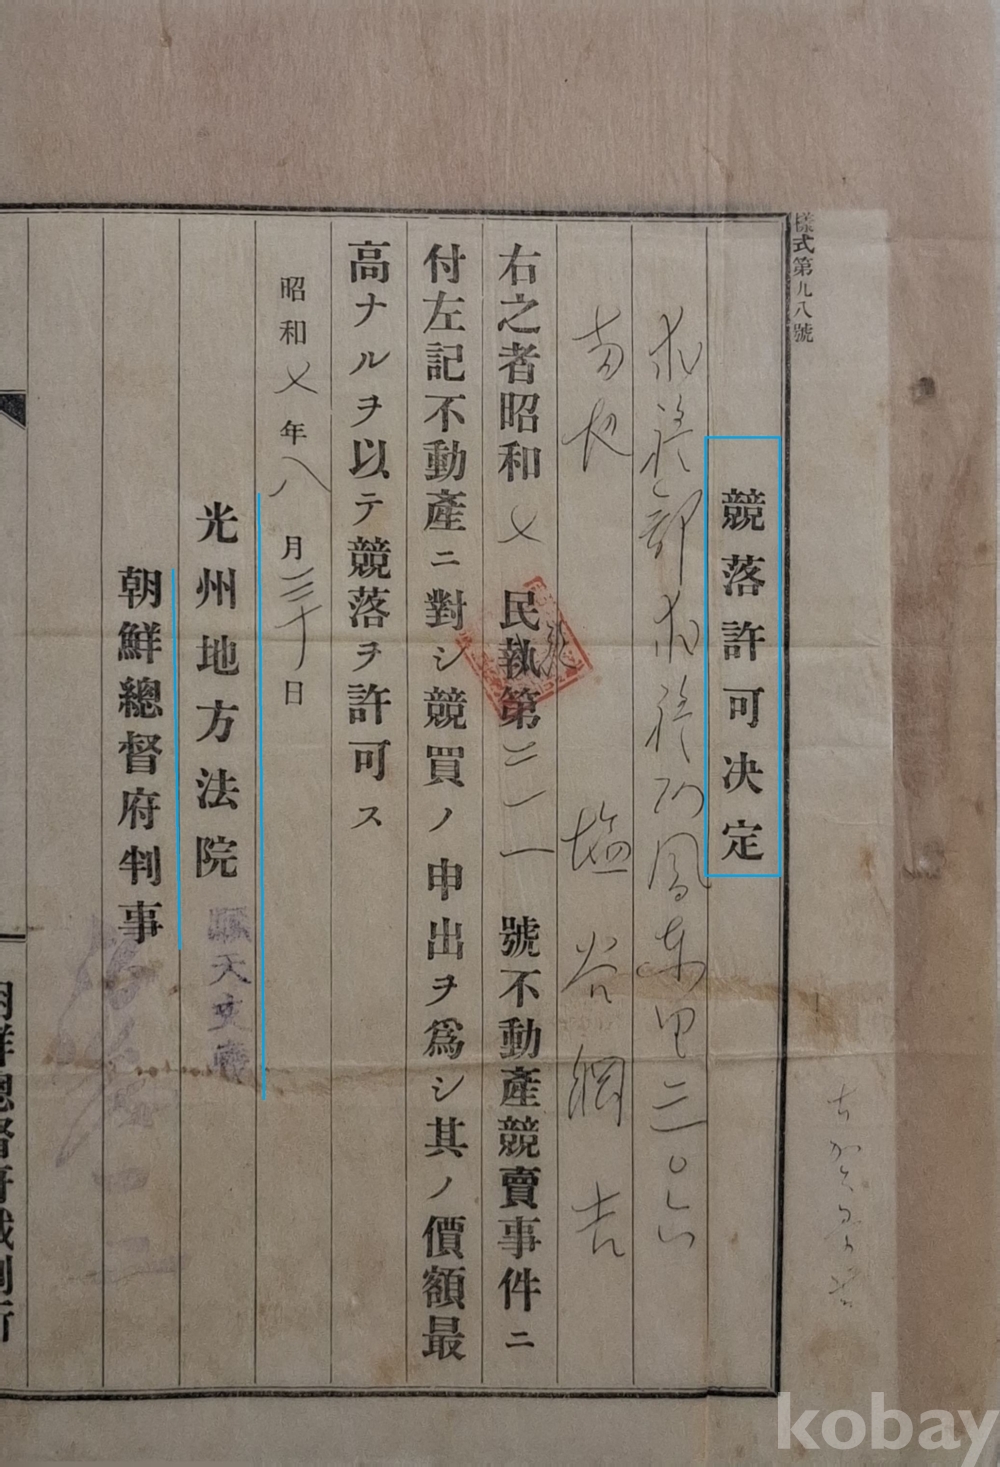 樣式第九八號
競落許可決定
求禮郡求禮面鳳東里三〇六
塩谷綱吉
右之者昭和七民執第二一一號不動產競賣事件ニ
付左記不動產ニ對シ競買ノ申出ヲ爲シ其ノ價額最
高ナルヲ以テ競落ヲ許可ス
昭和七年八月三十日
光州地方法院
朝鮮總督府判事
朝鮮總督府裁判所
kobay